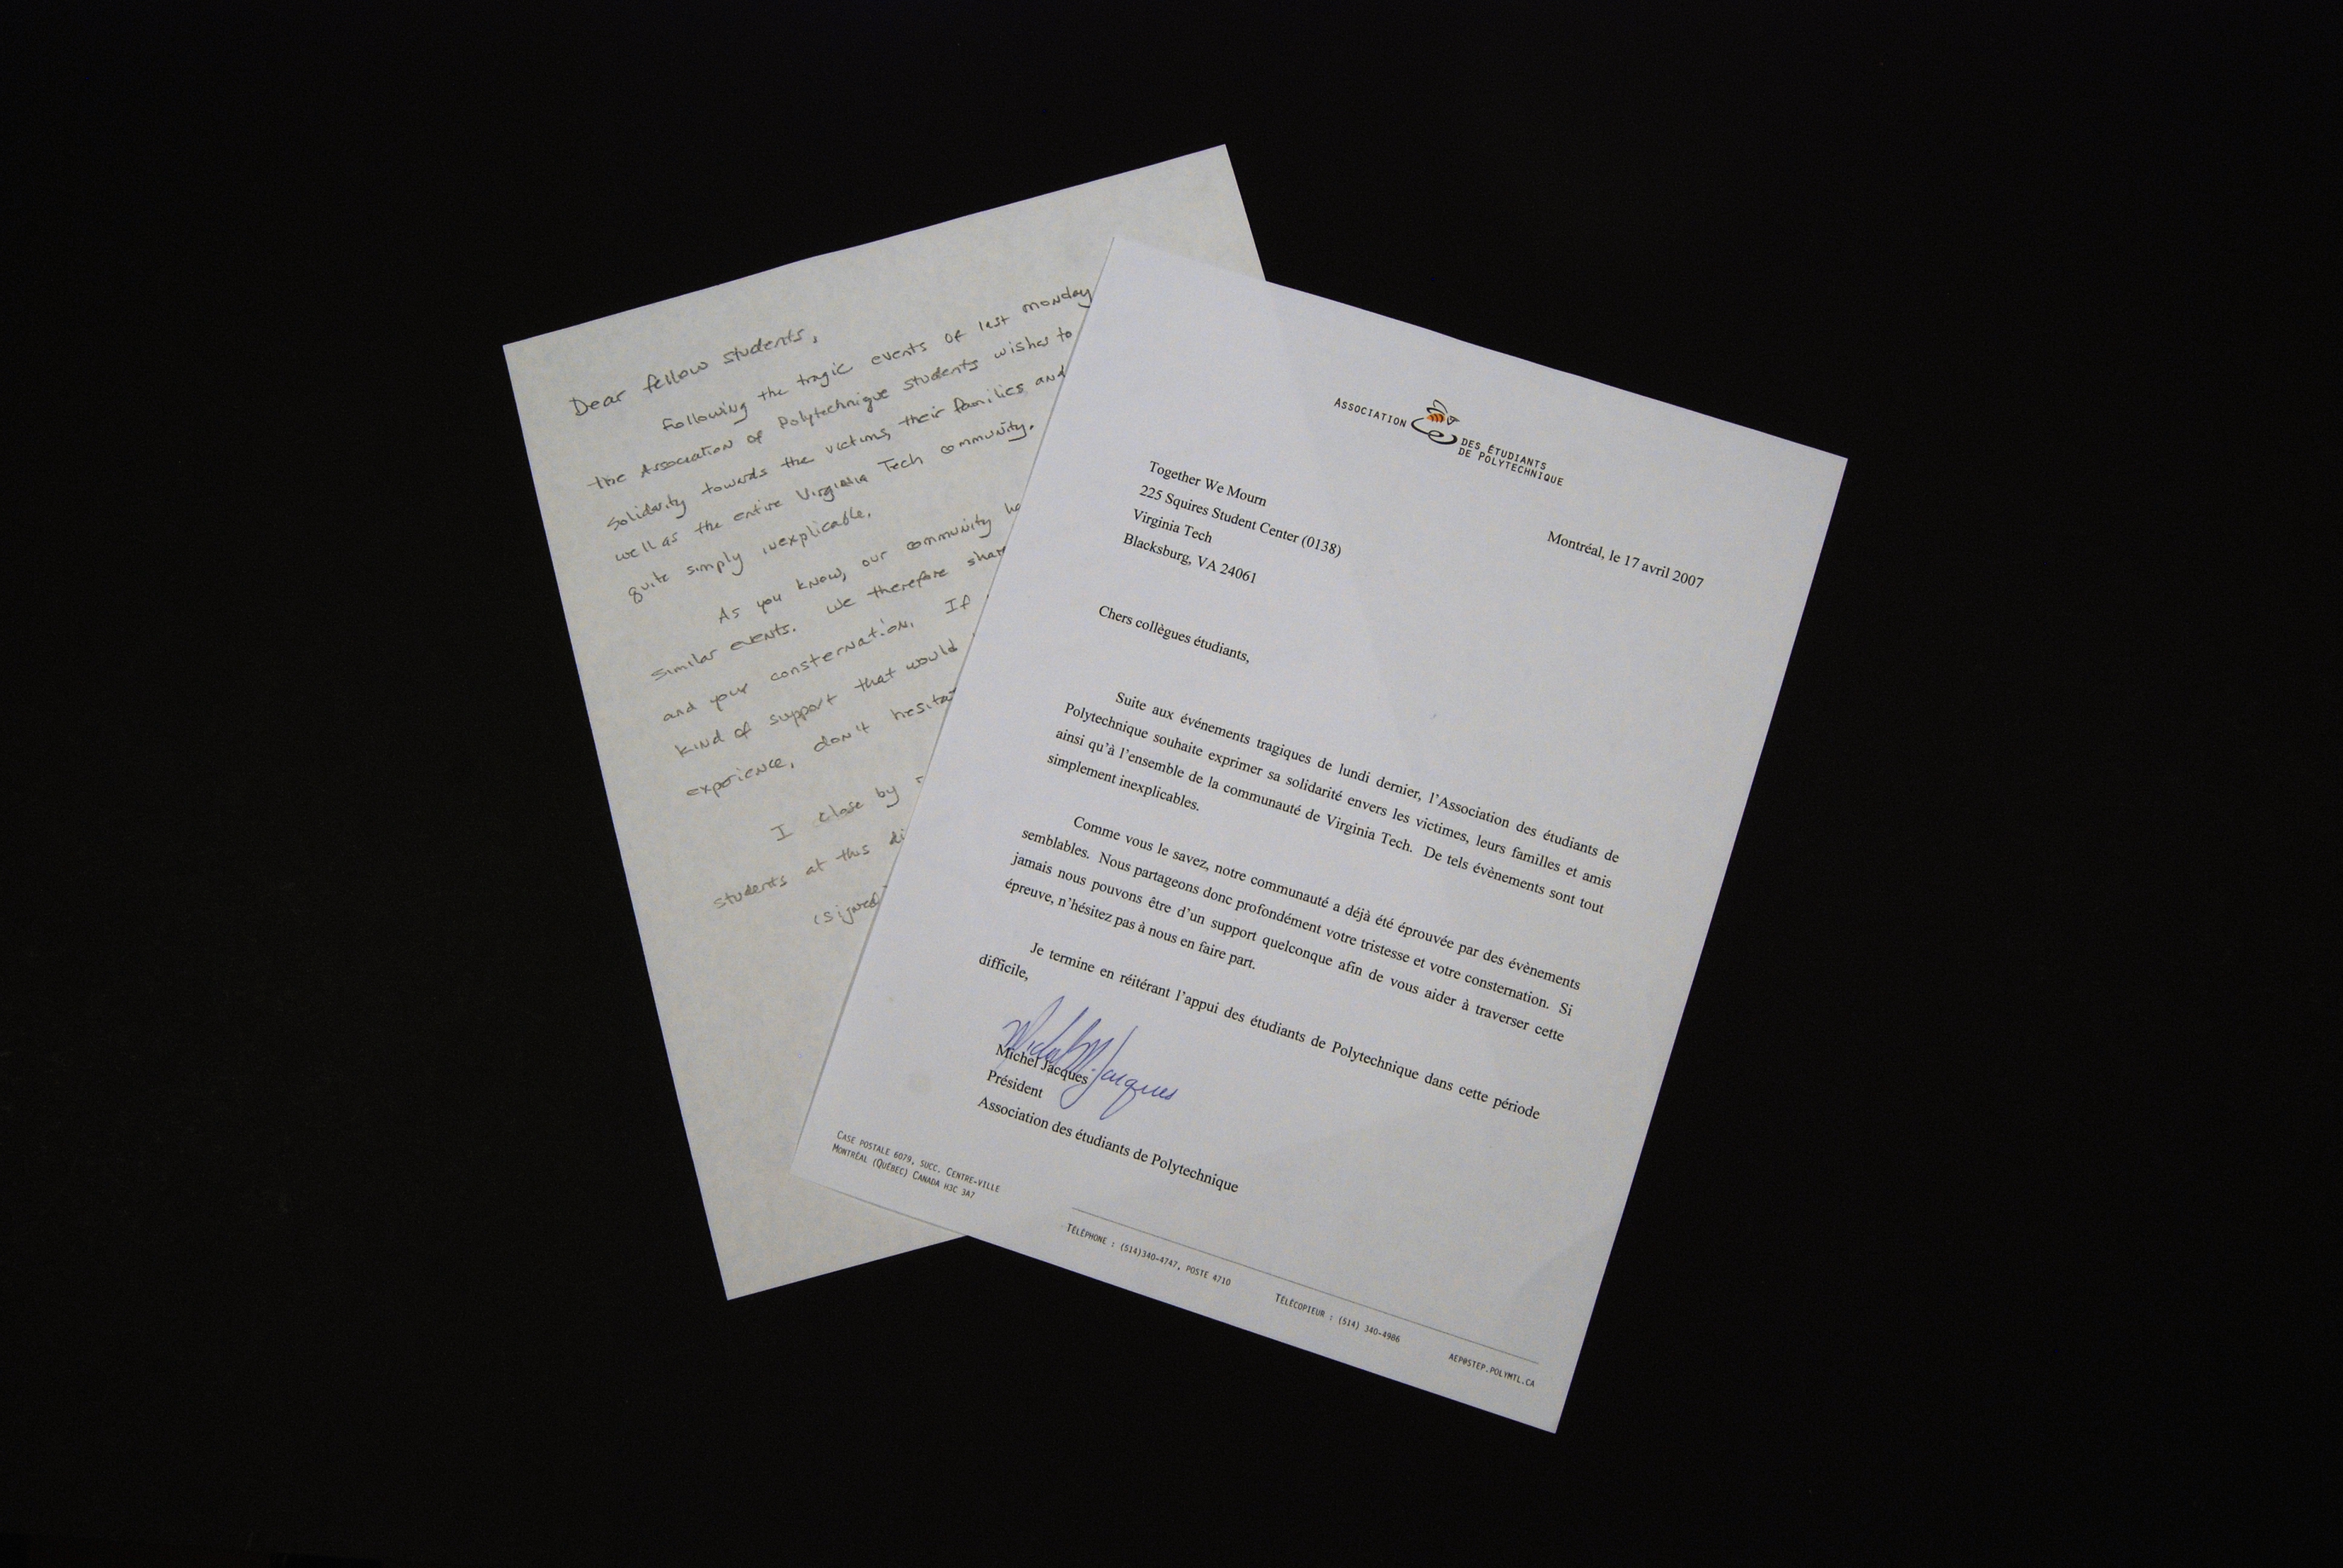 Dear fellow students,
Following the tragic events of last monday
the Association of Polytechnique students wishes to
solidarity towards the victims, their families and
well as the entire Virginia Tech community.
quite simply inexplicable.
As you know, our community ha
similar events. We therefore shar
and your consternation. If
kind of support that would
experience, don't hesitat
I close by
students at this di
(signed
ASSOCIATION
DES ÉTUDIANTS
DE POLYTECHNIQUE
Together We Mourn
225 Squires Student Center (0138)
Virginia Tech
Blacksburg, VA 24061
Montréal, le 17 avril 2007
Chers collègues étudiants,
Suite aux événements tragiques de lundi dernier, l'Association des étudiants de
Polytechnique souhaite exprimer sa solidarité envers les victimes, leurs familles et amis
ainsi qu'à l'ensemble de la communauté de Virginia Tech. De tels évènements sont tout
simplement inexplicables.
Comme vous le savez, notre communauté a déjà été éprouvée par des évènements
semblables. Nous partageons donc profondément votre tristesse et votre consternation. Si
jamais nous pouvons être d'un support quelconque afin de vous aider à traverser cette
épreuve, n'hésitez pas à nous en faire part.
Je termine en réitérant l'appui des étudiants de Polytechnique dans cette période
difficile,
Michel Jacques
Président
Association des étudiants de Polytechnique
CASE POSTALE 6079, SUCC. CENTRE-VILLE
MONTRÉAL (QUÉBEC) CANADA H3C 3A7
TÉLÉPHONE : (514)340-4747, POSTE 4710
TÉLÉCOPIEUR : (514) 340-4986
AEP@STEP.POLYMTL.CA